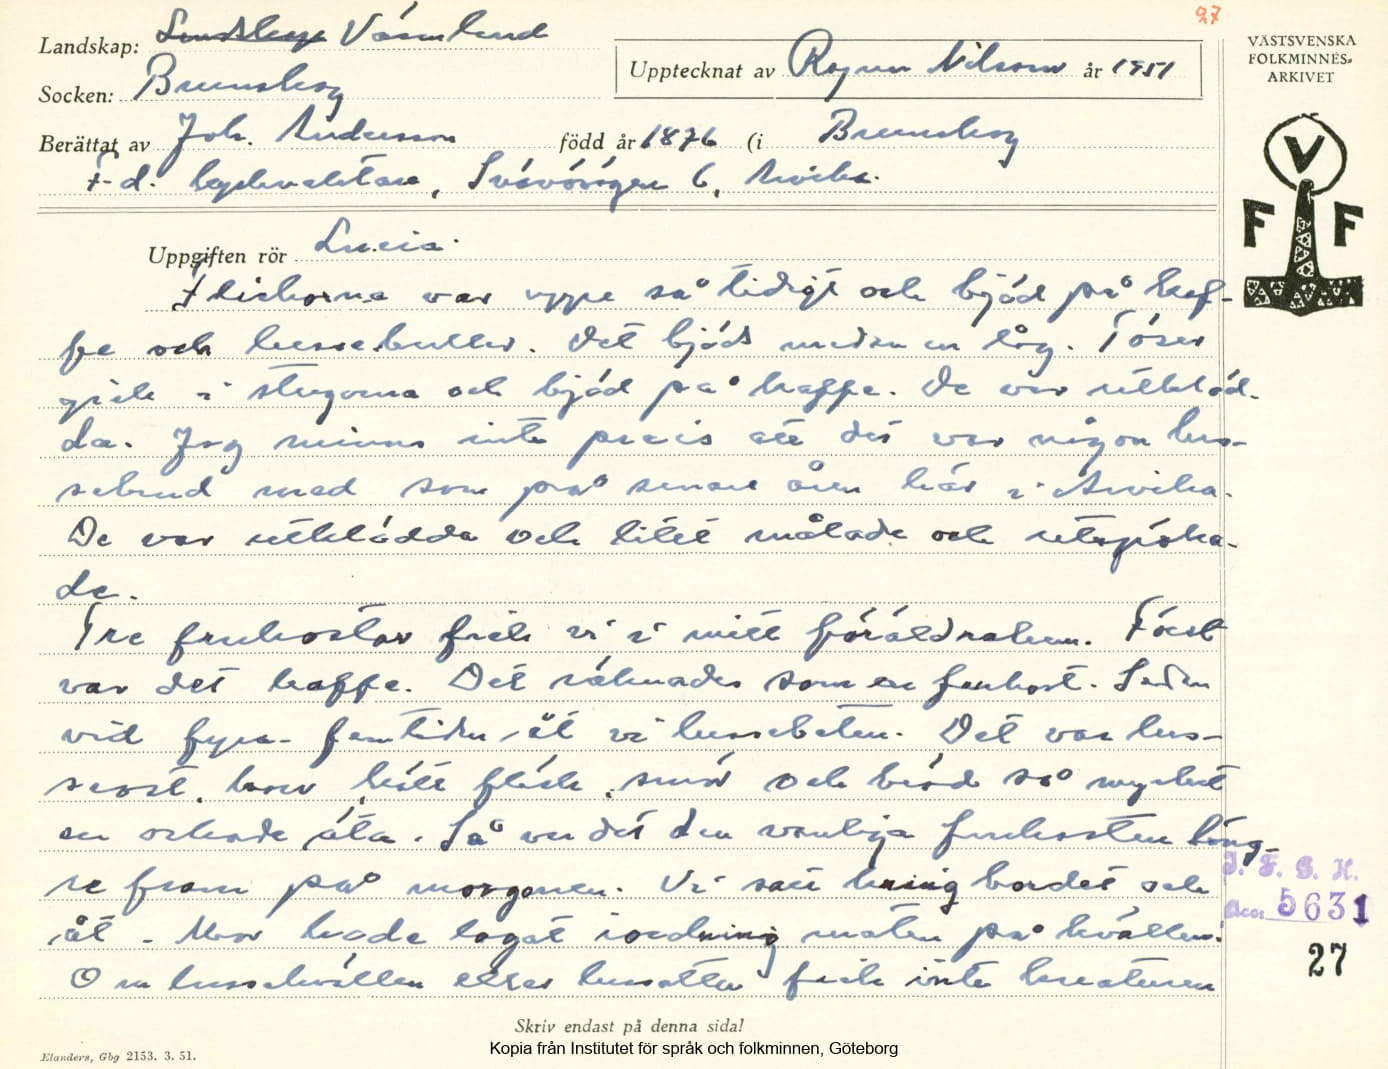 97
Landskap: Värmland
Socken: Brunskog
Upptecknat av Ragnar Nilsson år 1951
VÄSTSVENSKA
FOLKMINNES-
ARKIVET
V
F F
Berättat av Joh. Andersson född år 1876 (i Brunskog
F.d. 6, Arvika.
Uppgiften rör Lucia.
Flickorna var uppe så tidigt och bjöd på kaf-
fe och lussebullar. Det bjöds medan en låg. Töser
gick i stugorna och bjöd på kaffe. De var utkläd-
da. Jag minns inte precis att det var någon lus-
sebrud med som på senare åren här i Arvika.
De var utklädda och litet målade och utspöka-
de.
Tre frukostar fick vi i mitt föräldrahem. Först
var det kaffe. Det räknades som en frukost. Sedan
vid fyra- femtiden åt vi lussebeten. Det var lus-
seost, korv, kött, fläsk, smör och bröd så mycket
en orkade äta. Så var det den vanliga frukosten läng-
re fram på morgonen. Vi satt kring bordet och
åt. Mor hade lagat iordning maten på kvällen.
Om lussekvällen eller lussenatten fick inte kreaturen
I. F. G. H.
Acc: 5631
27
Skriv endast på denna sida!
Elanders, Gbg 2153. 3. 51.
Kopia från Institutet för språk och folkminnen, Göteborg